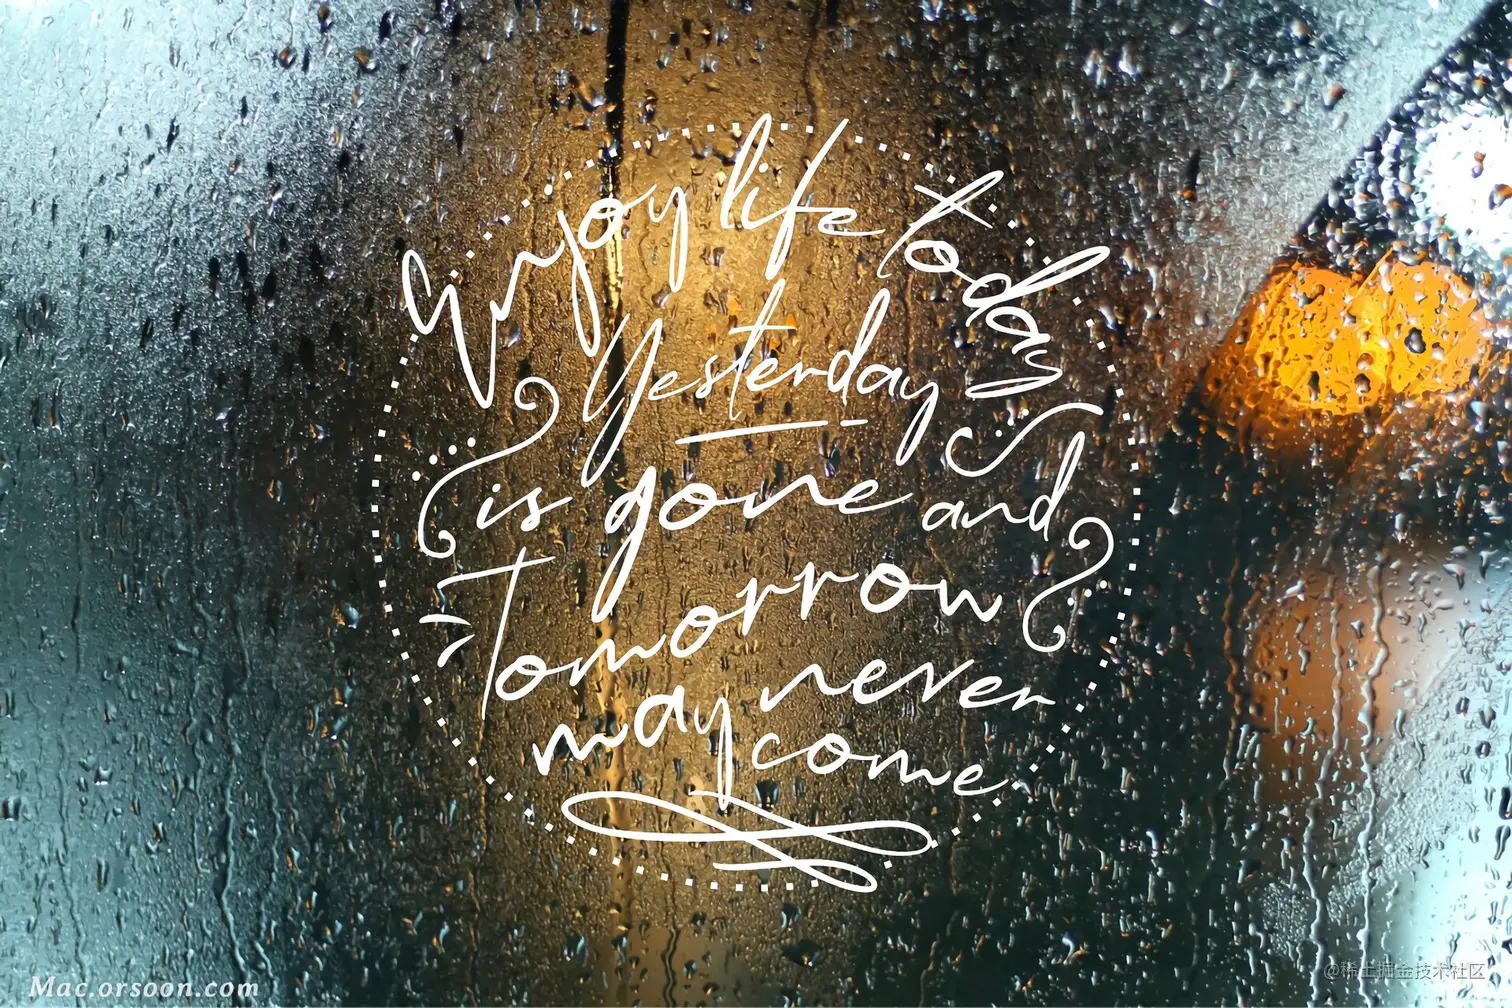 Enjoy life today
Yesterday
is gone and
Tomorrow
may never
come
Mac.orsoon.com
@稀土掘金技术社区